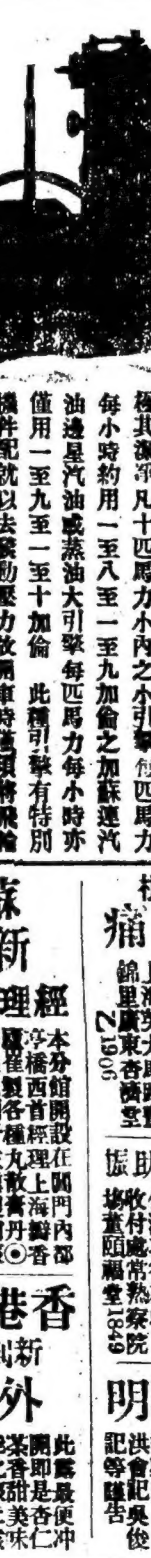 極其潔淨凡十匹馬力小內之小引擎每匹馬力
每小時約用一至八至一至九加倫之加蘇連汽
油邊星汽油或蒸油大引擎每匹馬力每小時亦
僅用一至九至一至十加倫 此種引擎有特別
機件配就以去發動壓力故開車時僅須將飛輪
痛
錦里廣東香濟堂
Z1906
助
振
收付處常熟察院
場童頤福堂1849
明
洪會記吳俊
記等謹告
蘇
新
經
理
本分館開設在閶門內都
亭橋西首經理上海瓣香
廬催製各種丸散膏丹◎
香
港
新
外
此露最便冲
開即是杏仁
茶香甜美味